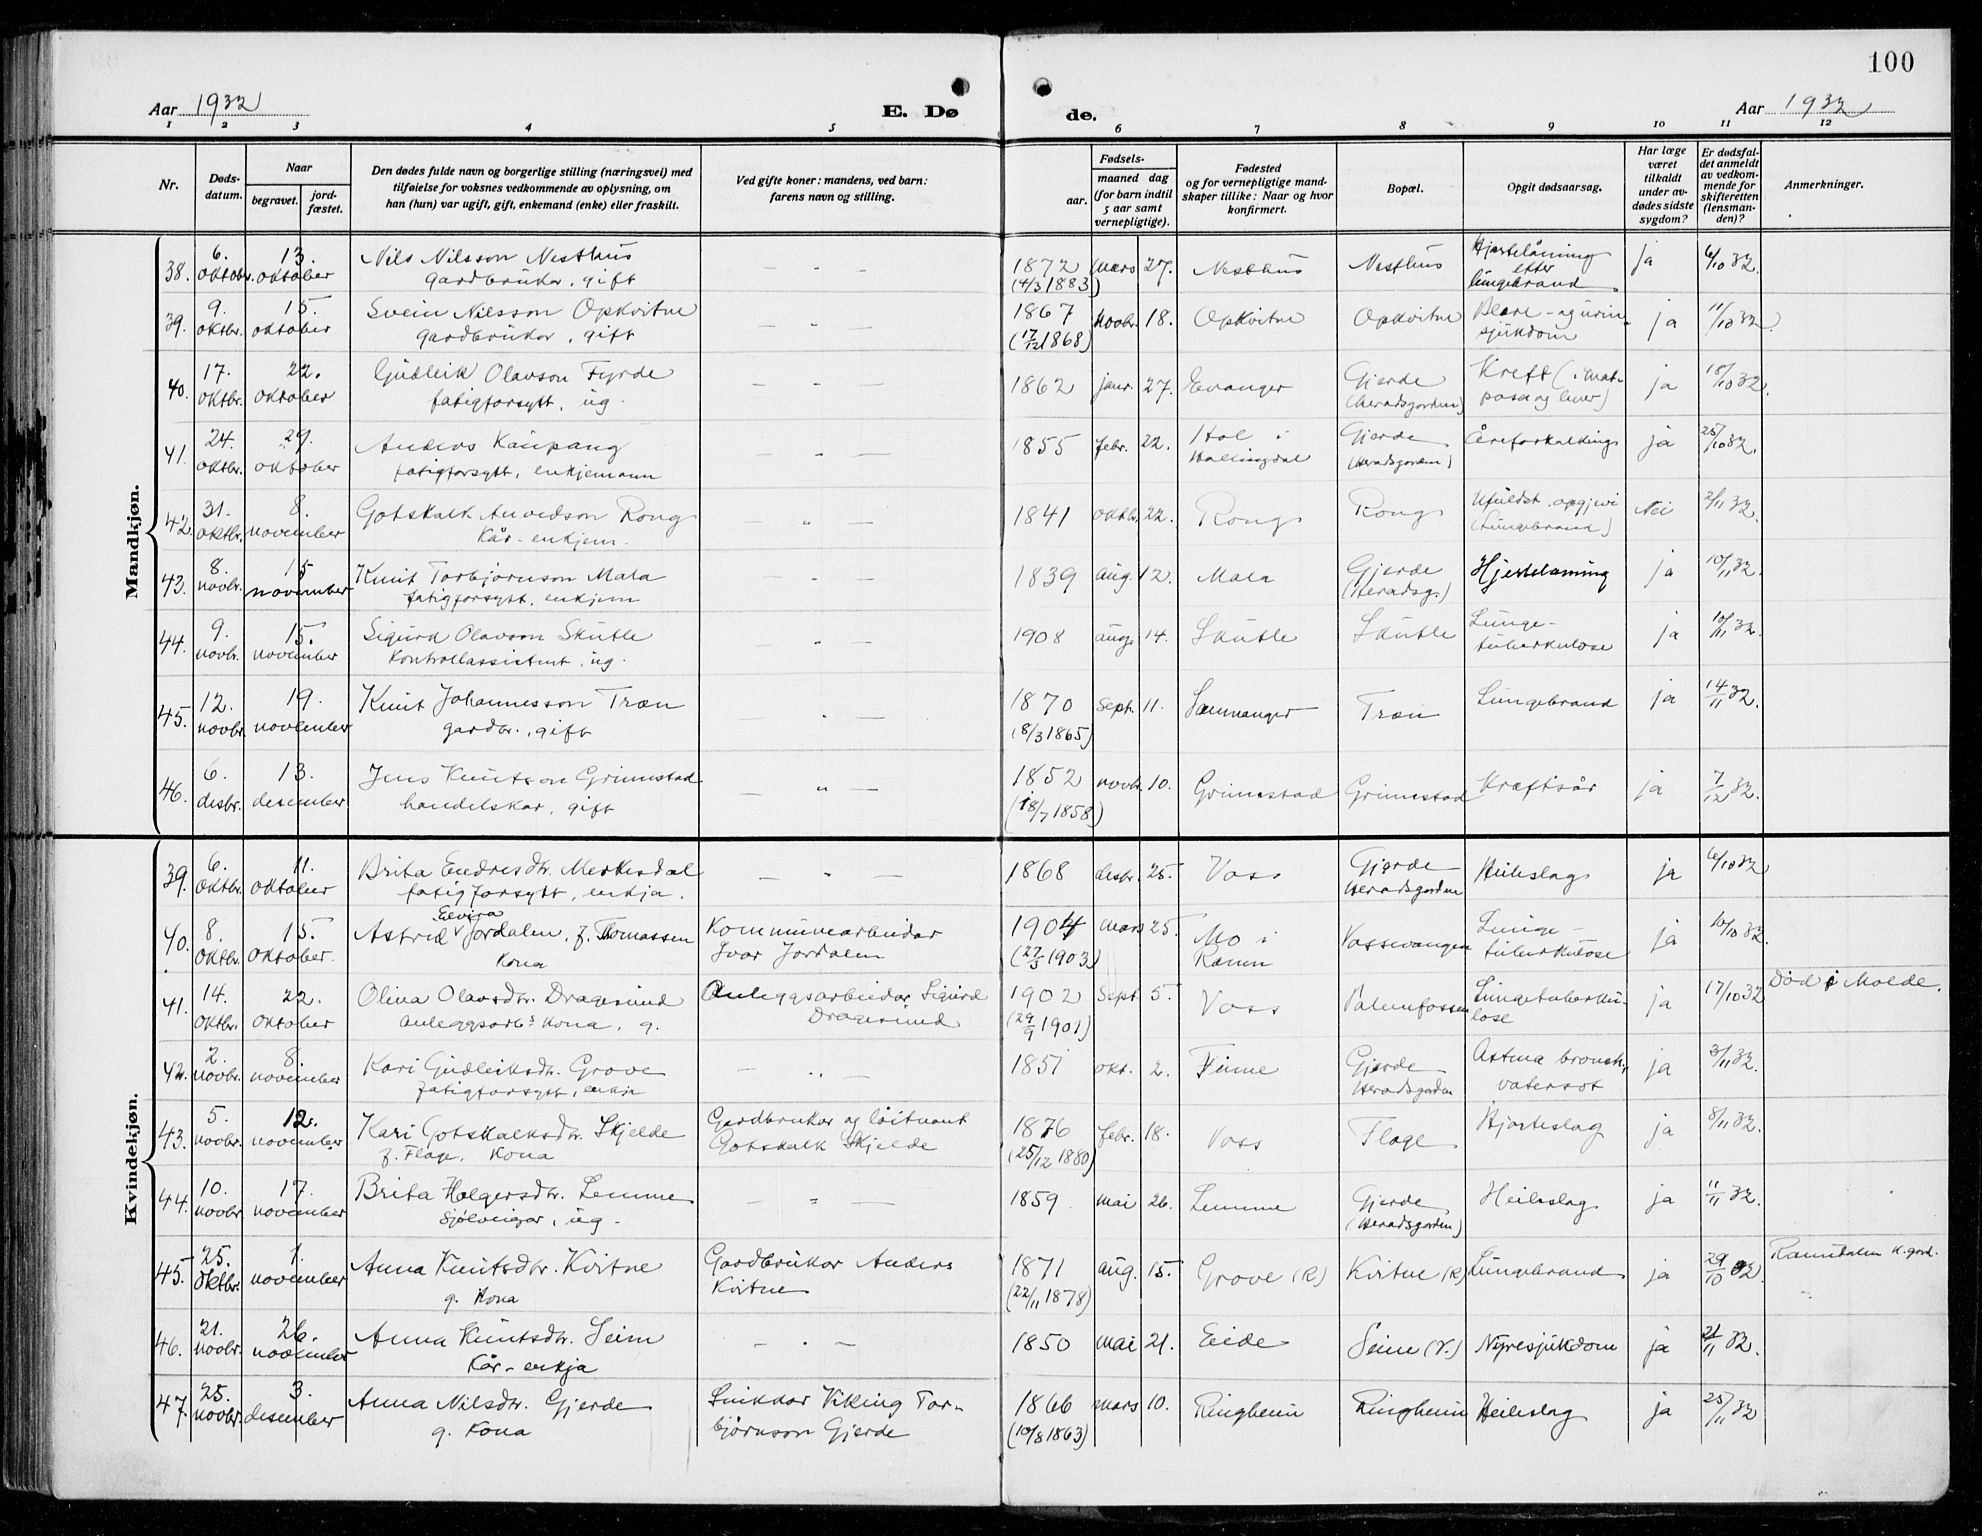 100
Aar 1932
E. Dø
de.
Aar 1932
1 2 3 4 5 6 7 8 9 10 11 12
Nr.
Døds-
datum.
Naar
begravet.
jord-
fæstet.
Den dødes fulde navn og borgerlige stilling (næringsvei) med
tilføielse for voksnes vedkommende av oplysning, om
han (hun) var ugift, gift, enkemand (enke) eller fraskilt.
Ved gifte koner: mandens, ved barn:
farens navn og stilling.
Fødsels-
aar.
maaned dag
(for barn indtil
5 aar samt
vernepligtige).
Fødested
og for vernepligtige mand-
skaper tillike: Naar og hvor
konfirmert.
Bopæl.
Opgit dødsaarsag.
Har læge
været
tilkaldt
under av-
dødes sidste
sygdom?
Er dødsfal-
det anmeldt
av vedkom-
mende for
skifteretten
(lensman-
den)?
Anmerkninger.
Mandkjøn.
38. 6. oktobr. 13. oktober Nils Nilsson Nesthus 1872 mars 27. Nesthus Nesthus Hjartelåming ja 6/10 32.
gardbrukar, gift (4/3 1883) etter
lungebrand
39. 9. oktbr. 15. oktober Svein Nilsson Opkvitne 1867 novbr. 18. Opkvitne Opkvitne Blære- og urin- ja 11/10 32.
gardbrukar, gift (17/12 1868) sjukdom
40. 17. oktbr. 22. oktober Gudleik Olavson Fyrde 1862 janr. 27. Evanger Gjerde Kreft (i mat- ja 18/10 32.
fatigforsytt, ug. (Heradsgarden) posa og lever)
41. 24. oktbr. 29. oktober Anders Kaupang 1855 febr. 22. Hol i Gjerde Åreforkalking ja 25/10 32.
fatigforsytt, enkjemann Hallingdal (Heradsgarden)
42. 31. oktbr. 8. november Gotskalk Anvedson Rong 1841 oktbr. 22. Rong Rong Ufuldst. opgjevi Nei 2/11 32.
Kår-enkjem. (Lungebrand)
43. 8. novbr. 15 november Knut Torbjørnson Mala 1839 aug. 12. Mala Gjerde Hjertelaming ja 10/11 32.
fatigforsytt, enkjem (Heradsg.)
44. 9. novbr. 15. november Sigurd Olavson Skutle 1908 aug. 14. Skutle Skutle Lunge- ja 10/11 32.
Kontrollassistent, ug. tuberkulose
45. 12. novbr. 19. november Knut Johannesson Træn 1870 sept. 11. Samnanger Træn Lungebrand ja 14/11 32.
gardbr., gift (8/3 1865)
46. 6. desbr. 13. desember Jens Knutson Grimestad 1852 novbr. 10. Grimestad Grimestad Kræftsår ja 7/12 32.
handelskar, gift (18/7 1858)
Kvindekjøn.
39. 6. oktbr. 11. oktober Brita Endresdtr. Merkesdal 1868 desbr. 25. Voss Gjerde Heileslag ja 6/10 32
fatigforsytt, enkja. Heradsgarden
40. 8. oktbr. 15. oktober. Astrid Elvira Jordalen, f. Thomassen Kommunearbeidar 1904 mars 25. Mo i Vossevangen Lunge- ja 10/10 32.
Kona Ivar Jordalen (27/3 1903) Ranen tuberkulose
41. 14. oktbr. 22. oktober Olina Olavsdtr. Dragesund Anleggsarbeidar Sigurd 1902 Sept 5. Voss Palmafossen Lungetuberku- ja 17/10 32 Død i Molde.
anleggsarbs kona, g. Dragesund (29/9 1901) lose
42. 2. novbr. 8. november Kari Gudleiksdtr. Grove 1851 okt. 2. Finne Gjerde Astma bronch., ja 3/11 32.
fatigforsytt, enkja Heradsgarden vatersot
43. 5. novbr. 12. november Kari Gotskalksdtr. Skjelde Gardbrukar og løitnant 1876 febr. 18. Voss Flage Hjarteslag ja 8/11 32.
f. Flage, Kona Gotskalk Skjelde (25/12 1880)
44. 10. novbr. 17. november Brita Holgersdtr. Lemme 1859 mai 26. Lemme Gjerde Heileslag ja 11/11 32.
sjølveigar, ug. (Heradsgarden)
45. 25. oktbr. 1. november Anna Knutsdtr. Kvitne Gardbrukar Anders 1871 aug. 15. Grove (R) Kvitne (R) Lungebrand ja 29/10 32. Raundalen k.gard.
g. Kona Kvitne (22/11 1878)
46. 21. novbr. 26. november Anna Knutsdtr. Seim 1850 mai 21. Eide Seim (V.) Nyresjukdom ja 21/11 32.
Kår-enkja
47. 25. novbr. 3. desember Anna Nilsdtr. Gjerde Snikkar Viking Tor- 1866 mars 10. Ringheim Ringheim Heileslag ja 25/11 32
g. Kona bjørnson Gjerde (10/8 1863)